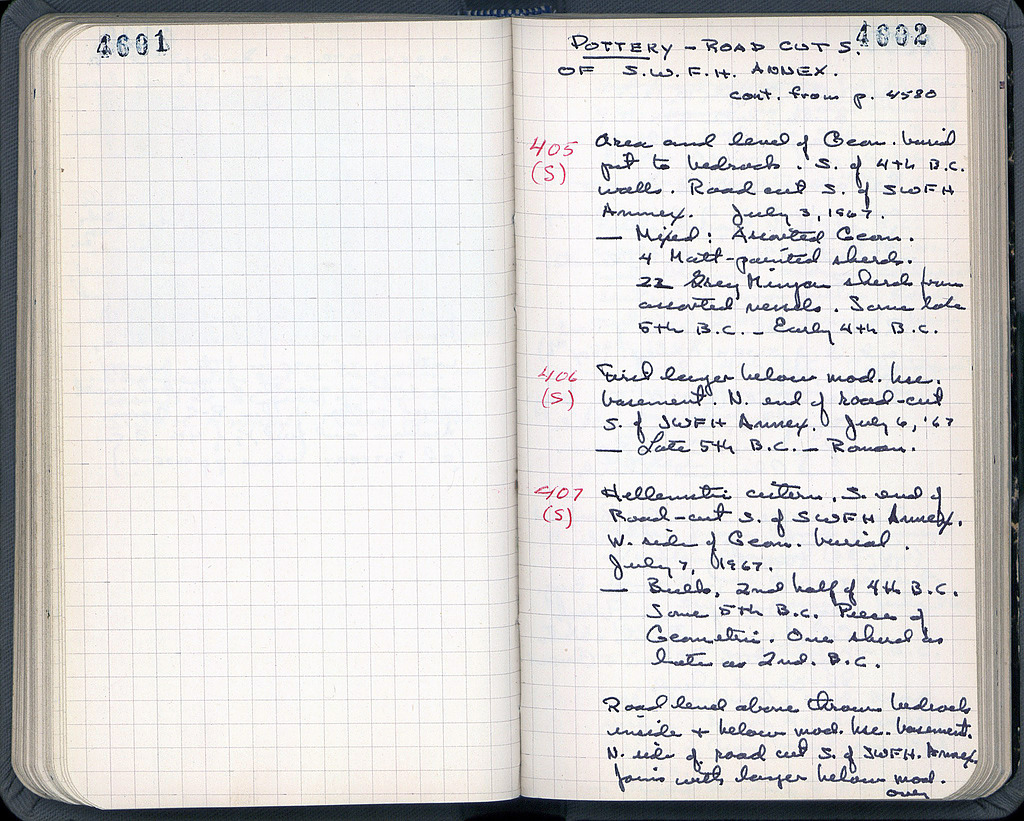 4601
4602
POTTERY - ROAD CUT S.
OF S.W.F.H. ANNEX.
cont. from p. 4580
405
(S)
Area and level of Geom. burial
pit to bedrock. S. of 4th B.C.
walls. Road cut S. of SWFH
Annex. July 3, 1967.
— Mixed: Assorted Geom.
4 Matt-painted sherds.
22 Grey Minyan sherds from
assorted vessels. Some late
5th B.C. - Early 4th B.C.
406
(S)
First layer below mod. hse.
basement. N. end of road-cut
S. of SWFH Annex. July 6, '67
— Late 5th B.C. - Roman.
407
(S)
Hellenistic cistern, S. end of
Road-cut S. of SWFH Annex.
W. side of Geom. burial.
July 7, 1967.
— Bulk, 2nd half of 4th B.C.
Some 5th B.C. Piece of
Geometric. One sherd as
late as 2nd. B.C.
Road level above bedrock
inside + below mod. hse. basement.
N. side of road cut S. of SWFH. Annex.
Joins with layer below mod.
over